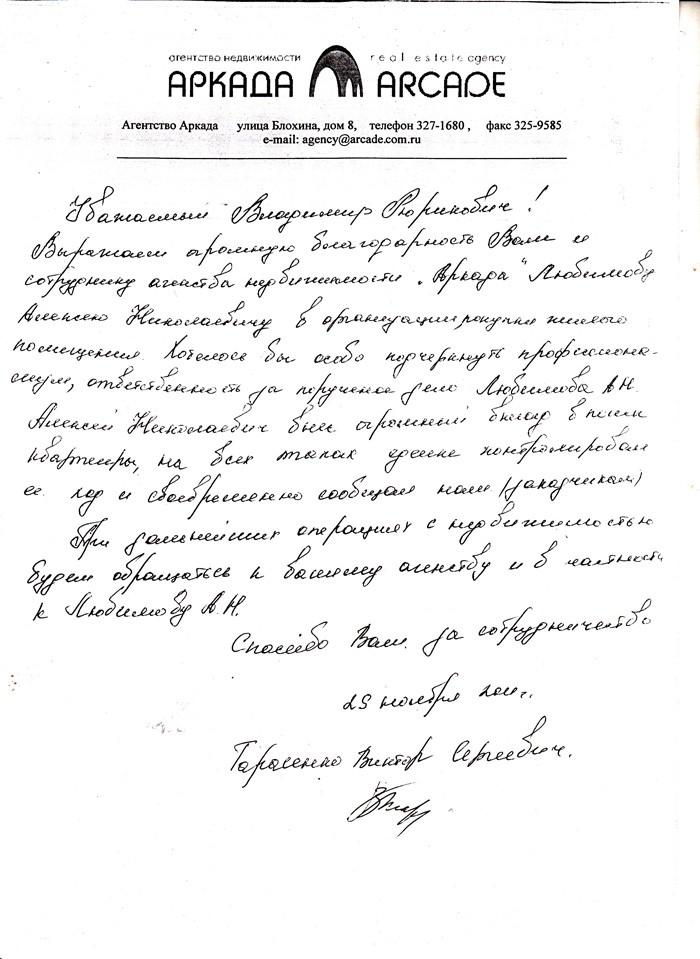 агентство недвижимости real estate agency
АРКАДА ARCADE
Агентство Аркада улица Блохина, дом 8, телефон 327-1680 , факс 325-9585
e-mail: agency@arcade.com.ru
Уважаемый Владимир Рюрикович !
Выражаем огромную благодарность Вам и
сотруднику агенства недвижимости „Аркада“ Любимову
Алексею Николаевичу в организации покупки жилого
помещения. Хотелось бы особо подчеркнуть профессиона-
лизм, ответственность за порученое дело Любимова А.Н.
Алексей Николаевич внес огромный вклад в
квартиры, на всех этапах контролировал
ее ход и своевременно сообщал нам (заказчикам)
При дальнейших операциях с недвижимостью
будем обращаться к вашему агенству и в частности
к Любимову А.Н.
Спасибо Вам за сотрудничество
25 ноября 2011г.
Тарасенко Виктор Сергеевич.